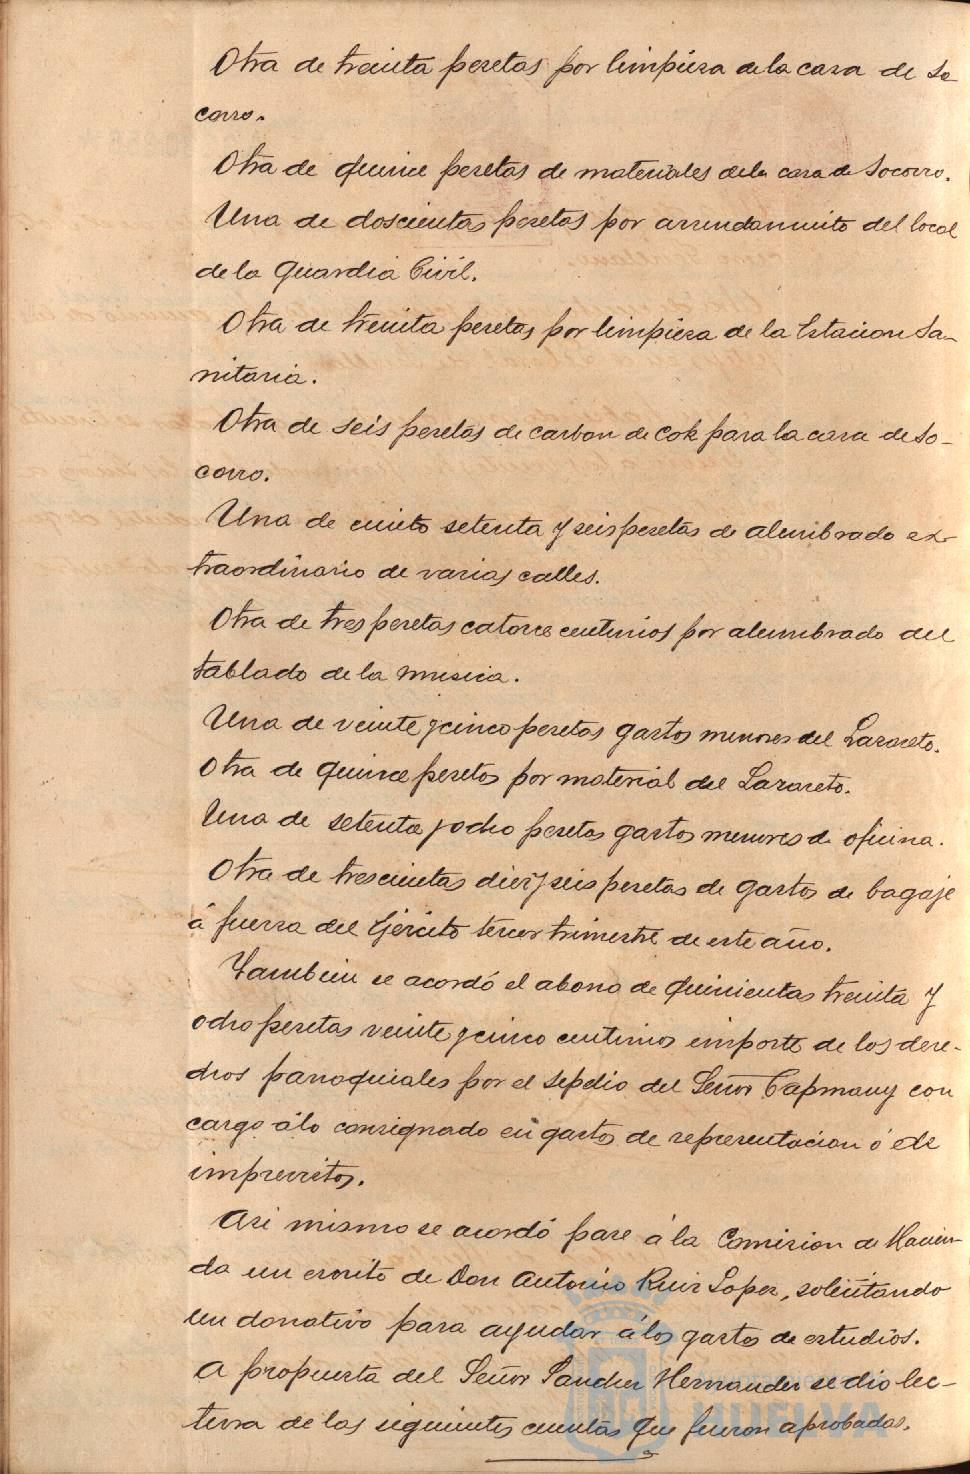 Otra de treinta pesetas por limpieza de la casa de So
corro.
Otra de quince pesetas de materiales de la casa de Socorro.
Una de doscientas pesetas por arrendamiento del local
de la Guardia Civil.
Otra de treinta pesetas por limpieza de la Estacion Sa-
nitaria.
Otra de seis pesetas de carbon de cok para la casa de So-
corro.
Una de ciento setenta y seis pesetas de alumbrado ex-
traordinario de varias calles.
Otra de tres pesetas catorce centimos por alumbrado del
tablado de la musica.
Una de veinte y cinco pesetas gastos menores del Lazareto.
Otra de quince pesetas por material del Lazareto.
Una de setenta y ocho pesetas gastos menores de oficina.
Otra de trescientas diez y seis pesetas de gastos de bagaje
á fuerza del Ejército tercer trimestre de este año.
Tambien se acordó el abono de quinientas treinta y
ocho pesetas veinte y cinco centimos importe de los dere-
chos parroquiales por el sepelio del Señor Capmany con
cargo á lo consignado en gastos de representacion ó de
imprevistos.
Asi mismo se acordó pase á la Comision de Hacien-
da un escrito de Don Antonio Ruiz Lopez, solicitando
un donativo para ayudar á los gastos de estudios.
A propuesta del Señor Sanchez Hernandez se dio lec-
tura de las siguientes cuentas que fueron aprobadas.
HUELVA